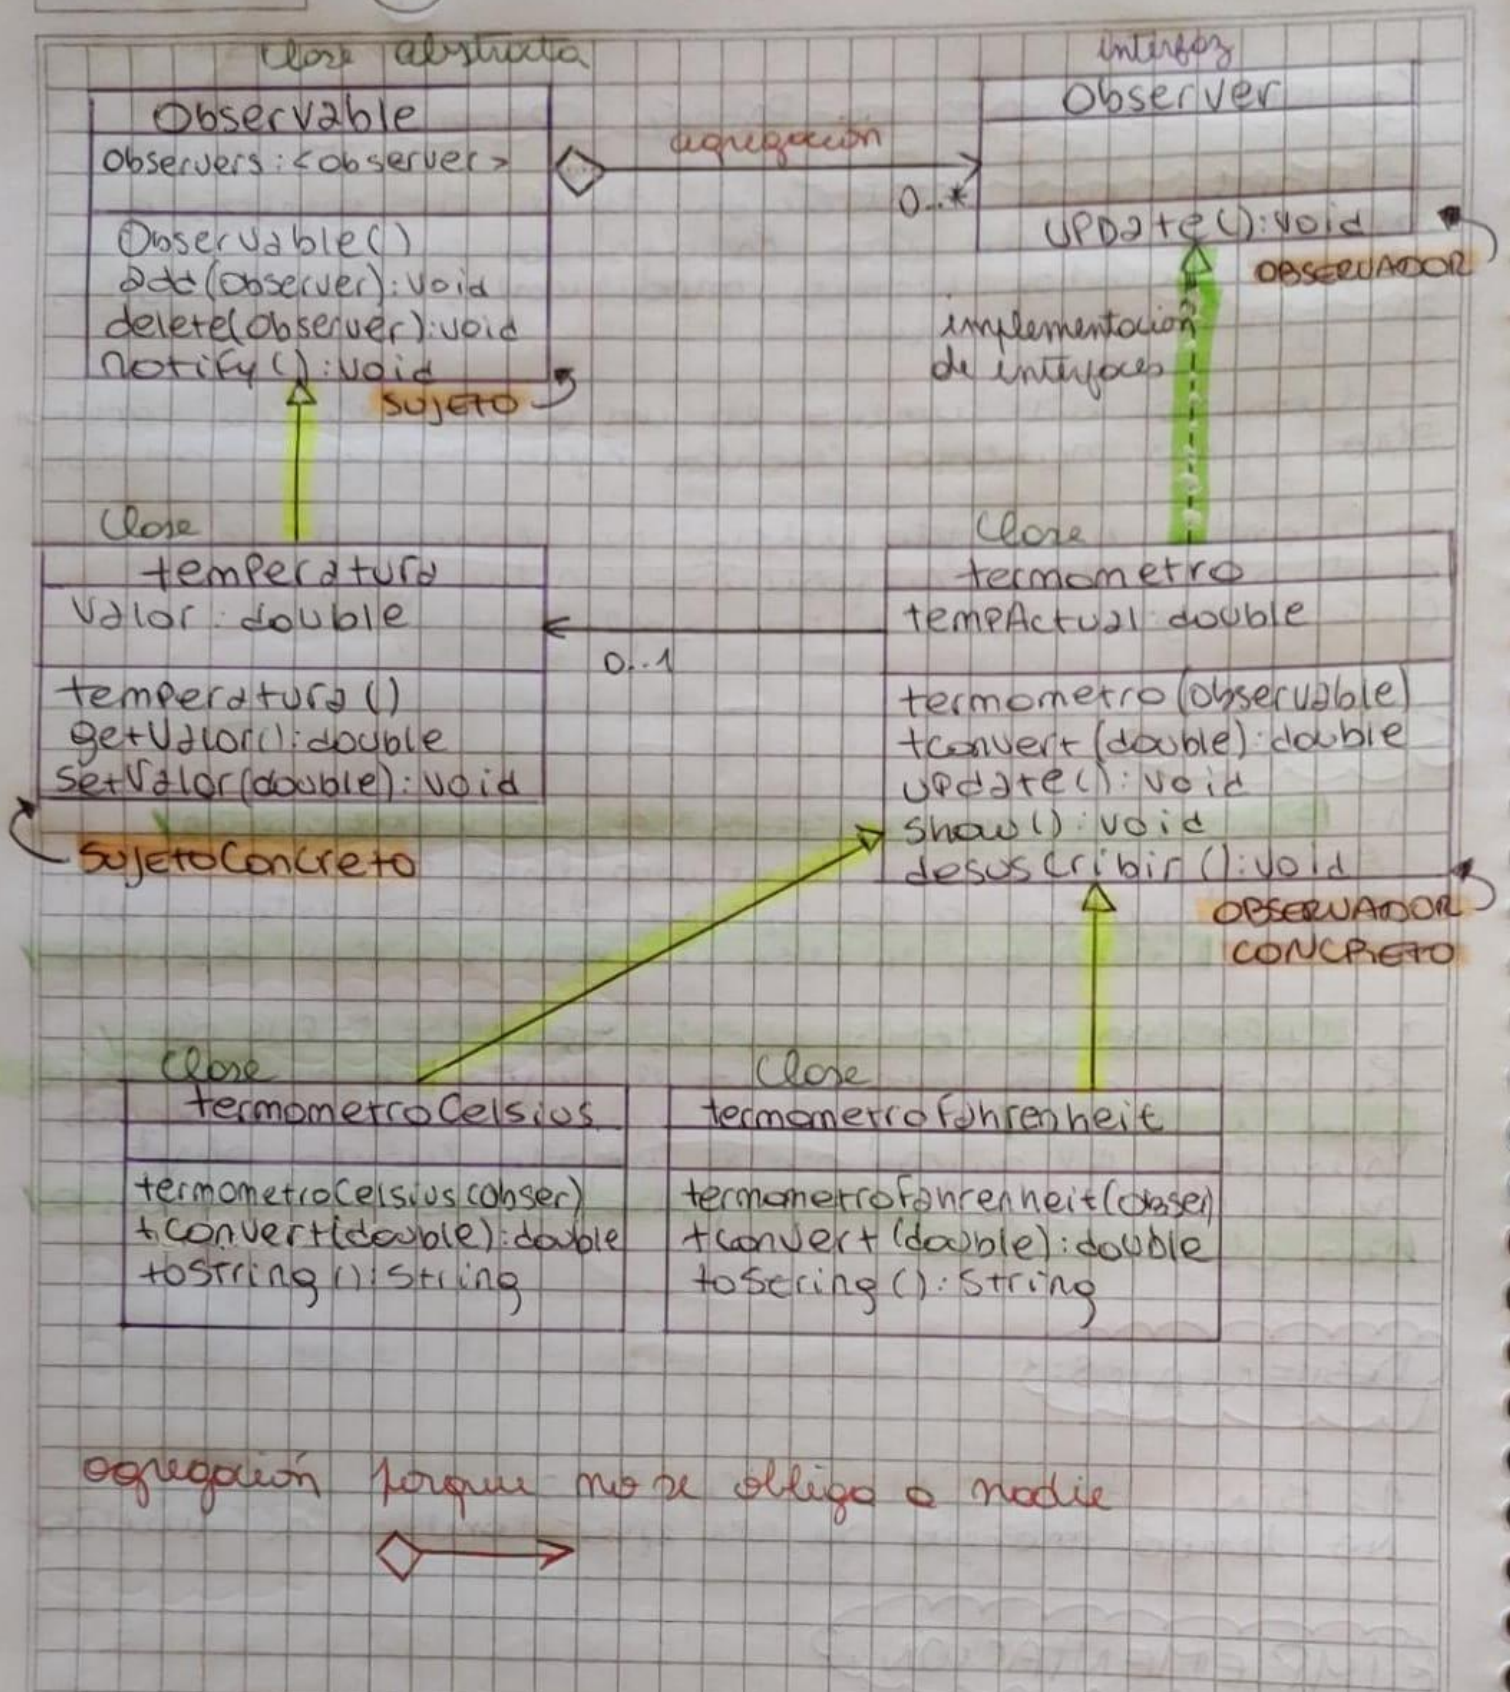 Clase abstracta
Observable
Observers: <observer>
Observable()
add(Observer): void
delete(Observer): void
notify(): void
SUJETO
agregación
0..*
interfaz
Observer
UPDate(): void
OBSERVADOR
implementación
de interfaces
Clase
temperatura
Valor: double
temperatura()
getValor(): double
setValor(double): void
SujetoConcreto
0..1
Clase
termometro
tempActual: double
termometro(observable)
+convert(double): double
update(): void
show(): void
desuscribir(): void
OBSERVADOR
CONCRETO
Clase
termometroCelsius
termometroCelsius(obser)
+convert(double): double
toString(): String
Clase
termometroFahrenheit
termometroFahrenheit(obser)
+convert(double): double
toString(): String
agregación porque no se obliga a nadie